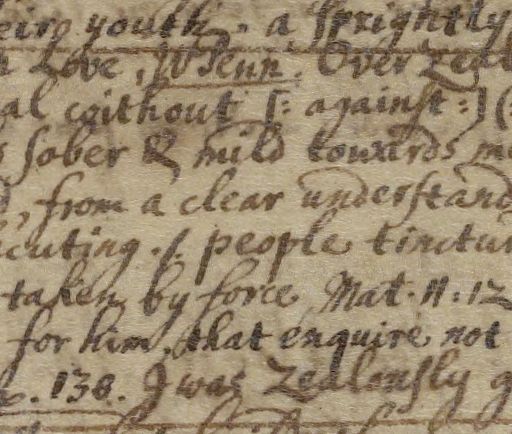 eir youth. a sprightly
Love, W Penn. Over Zeal
al without [: against :] (:
s sober & mild towards m
d, from a clear understand
cuting. people tinctur
taken by force Mat. 11: 12
for him, that enquire not
. 138. I was Zealously g